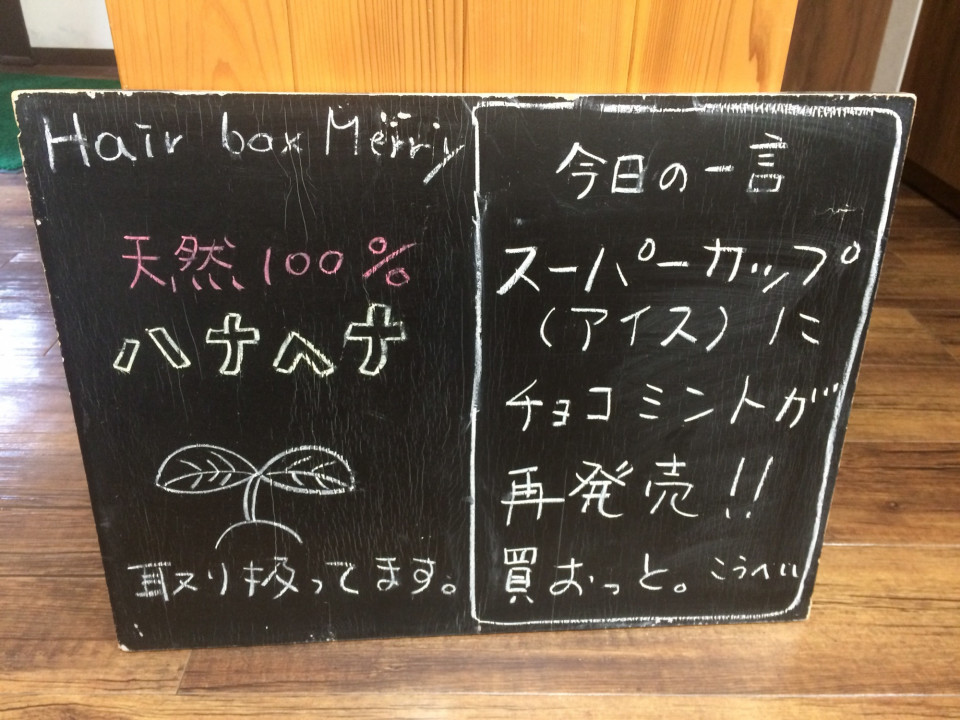 Hair box Merry
天然100%
ハナヘナ
取り扱ってます。
今日の一言
スーパーカップ
(アイス)に
チョコミントが
再発売!!
買おっと。こうへい